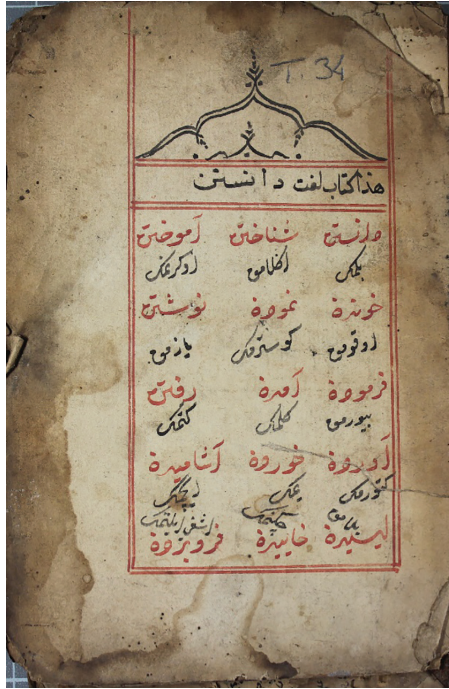 T. 34
هذا كتاب لغت دانستن
دانستن شناختن آموختن
بلمك اكلامق اوكرنمك
خوندة نمودة نوشتن
اوقومق كوسترمك يازمق
فرمودة آمدة رفتن
بيورمق كلمك كتمك
آوردة خوردة آشاميدة
كتورمك يمك ايچمك
يلامق چكنمك اشغى ايلتمك
ليسيدة خاييدة فروبردة